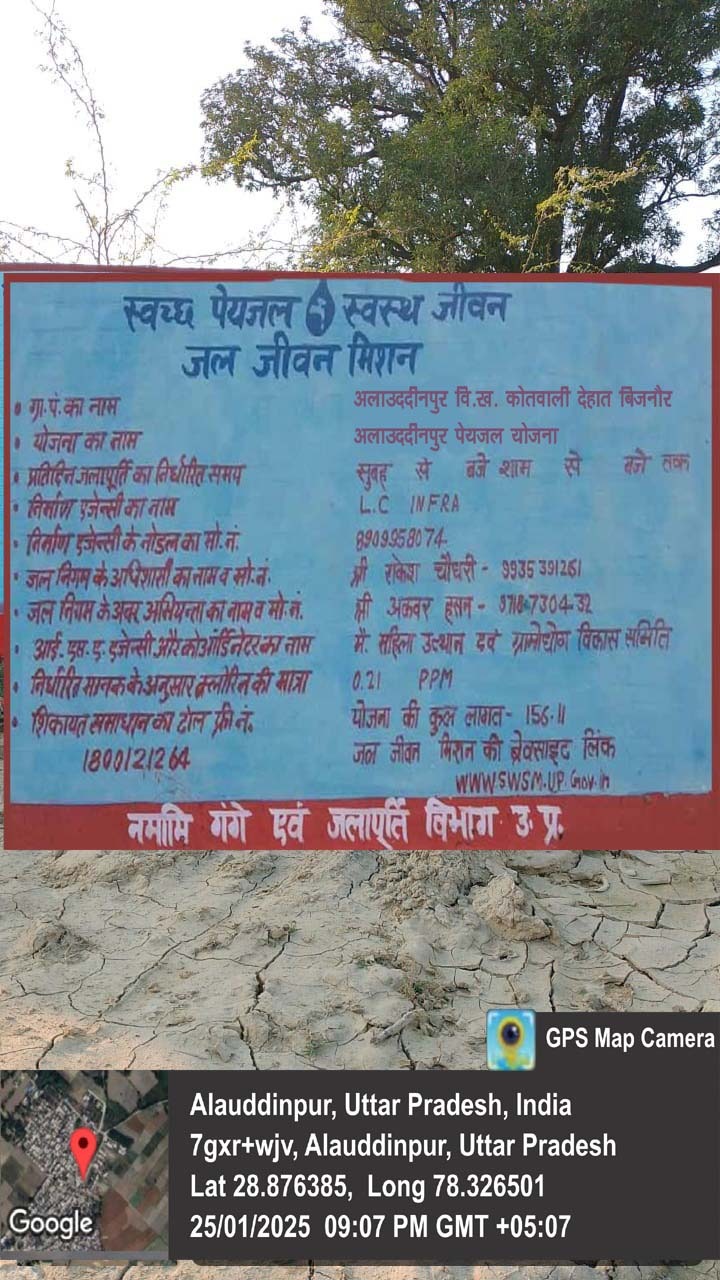 स्वच्छ पेयजल स्वस्थ जीवन
जल जीवन मिशन
• ग्रा.पं.का नाम अलाउददीनपुर वि.ख. कोतवाली देहात बिजनौर
• योजना का नाम अलाउददीनपुर पेयजल योजना
• प्रतिदिन जलापूर्ति का निर्धारित समय सुबह से बजे शाम से बजे तक
• निर्माण एजेन्सी का नाम L.C INFRA
• निर्माण एजेन्सी के नोडल का मो.नं. 8909958074.
• जल निगम के अधिशासी का नाम व मो.नं. श्री राकेश चौधरी - 9935391261
• जल निगम के अवर अभियन्ता का नाम व मो.नं. श्री अकवर हसन -
• आई.एस.ए.एजेन्सी और कोऑर्डिनेटर का नाम मै. महिला उत्थान एवं ग्रामोधोग विकास समिति
• निर्धारित मानक के अनुसार क्लोरिन की मात्रा 0.21 PPM
• शिकायत समाधान का टोल फ्री नं. योजना की कुल लागत - 156.11
1800121264 जल जीवन मिशन की बेवसाइट लिंक
WWW.SWSM.UP.Gov.in
नमामि गंगे एवं जलापूर्ति विभाग उ.प्र.
GPS Map Camera
Alauddinpur, Uttar Pradesh, India
7gxr+wjv, Alauddinpur, Uttar Pradesh
Lat 28.876385, Long 78.326501
25/01/2025 09:07 PM GMT +05:07
Google